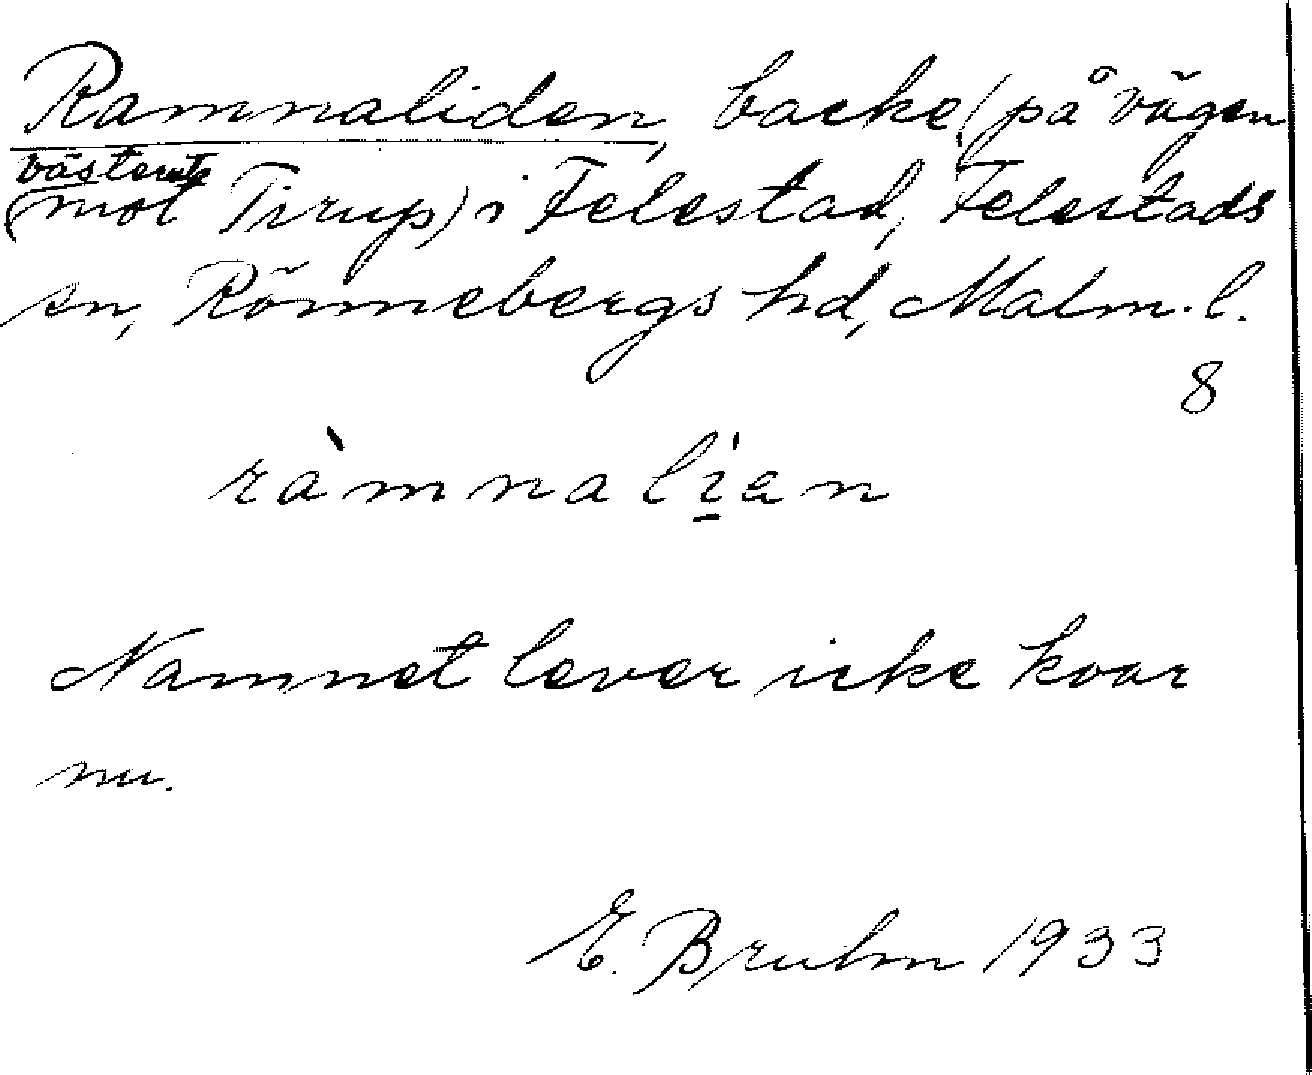 Ramnaliden, backe (på vägen
västerut
(mot Tirup) i Felestad, Felestads
sn, Rönnebergs hd, Malm. l.
8
ràmnali̠en
Namnet lever icke kvar
nu.
E. Bruhn 1933